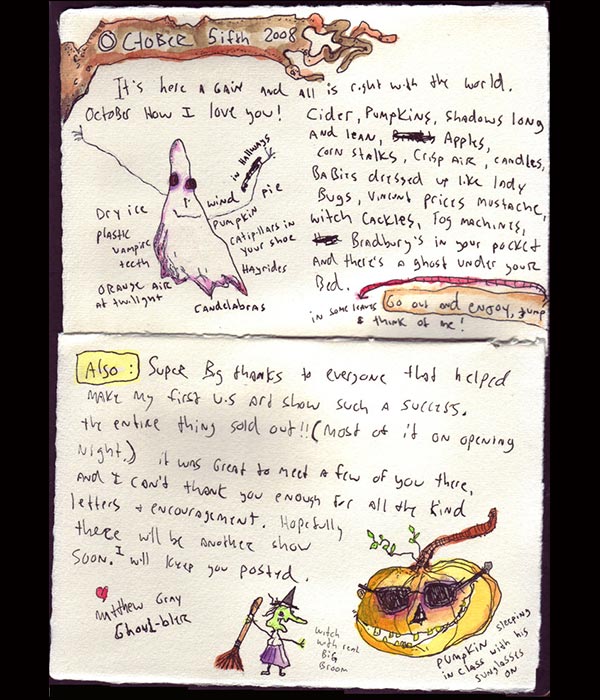 October 5ifth 2008
It's here again and all is right with the world.
October How I love you!
Cider, Pumpkins, Shadows long
and lean, Apples,
corn stalks, Crisp Air, candles,
Babies dressed up like lady
Bugs, Vincent prices mustache,
witch cackles, Fog machines,
Bradbury's in your pocket
And there's a ghost under your
Bed.
in Hallways
wind
pie
pumpkin
catipillars in
your shoe
Hayrides
Candelabras
Dry ice
plastic
vampire
teeth
orange air
at twilight
Go out and enjoy, jump
in some leaves
& think of me!
Also: Super Big thanks to everyone that helped
make my first U.S Art show such a success.
the entire thing sold out!! (most of it on opening
night.) it was great to meet a few of you there,
and I can't thank you enough for all the kind
letters & encouragement. Hopefully
there will be another show
soon. I will keep you posted.
Matthew Gray
Ghoul-bler
witch
with real
Big
Broom
pumpkin sleeping
in class with his
sunglasses
on